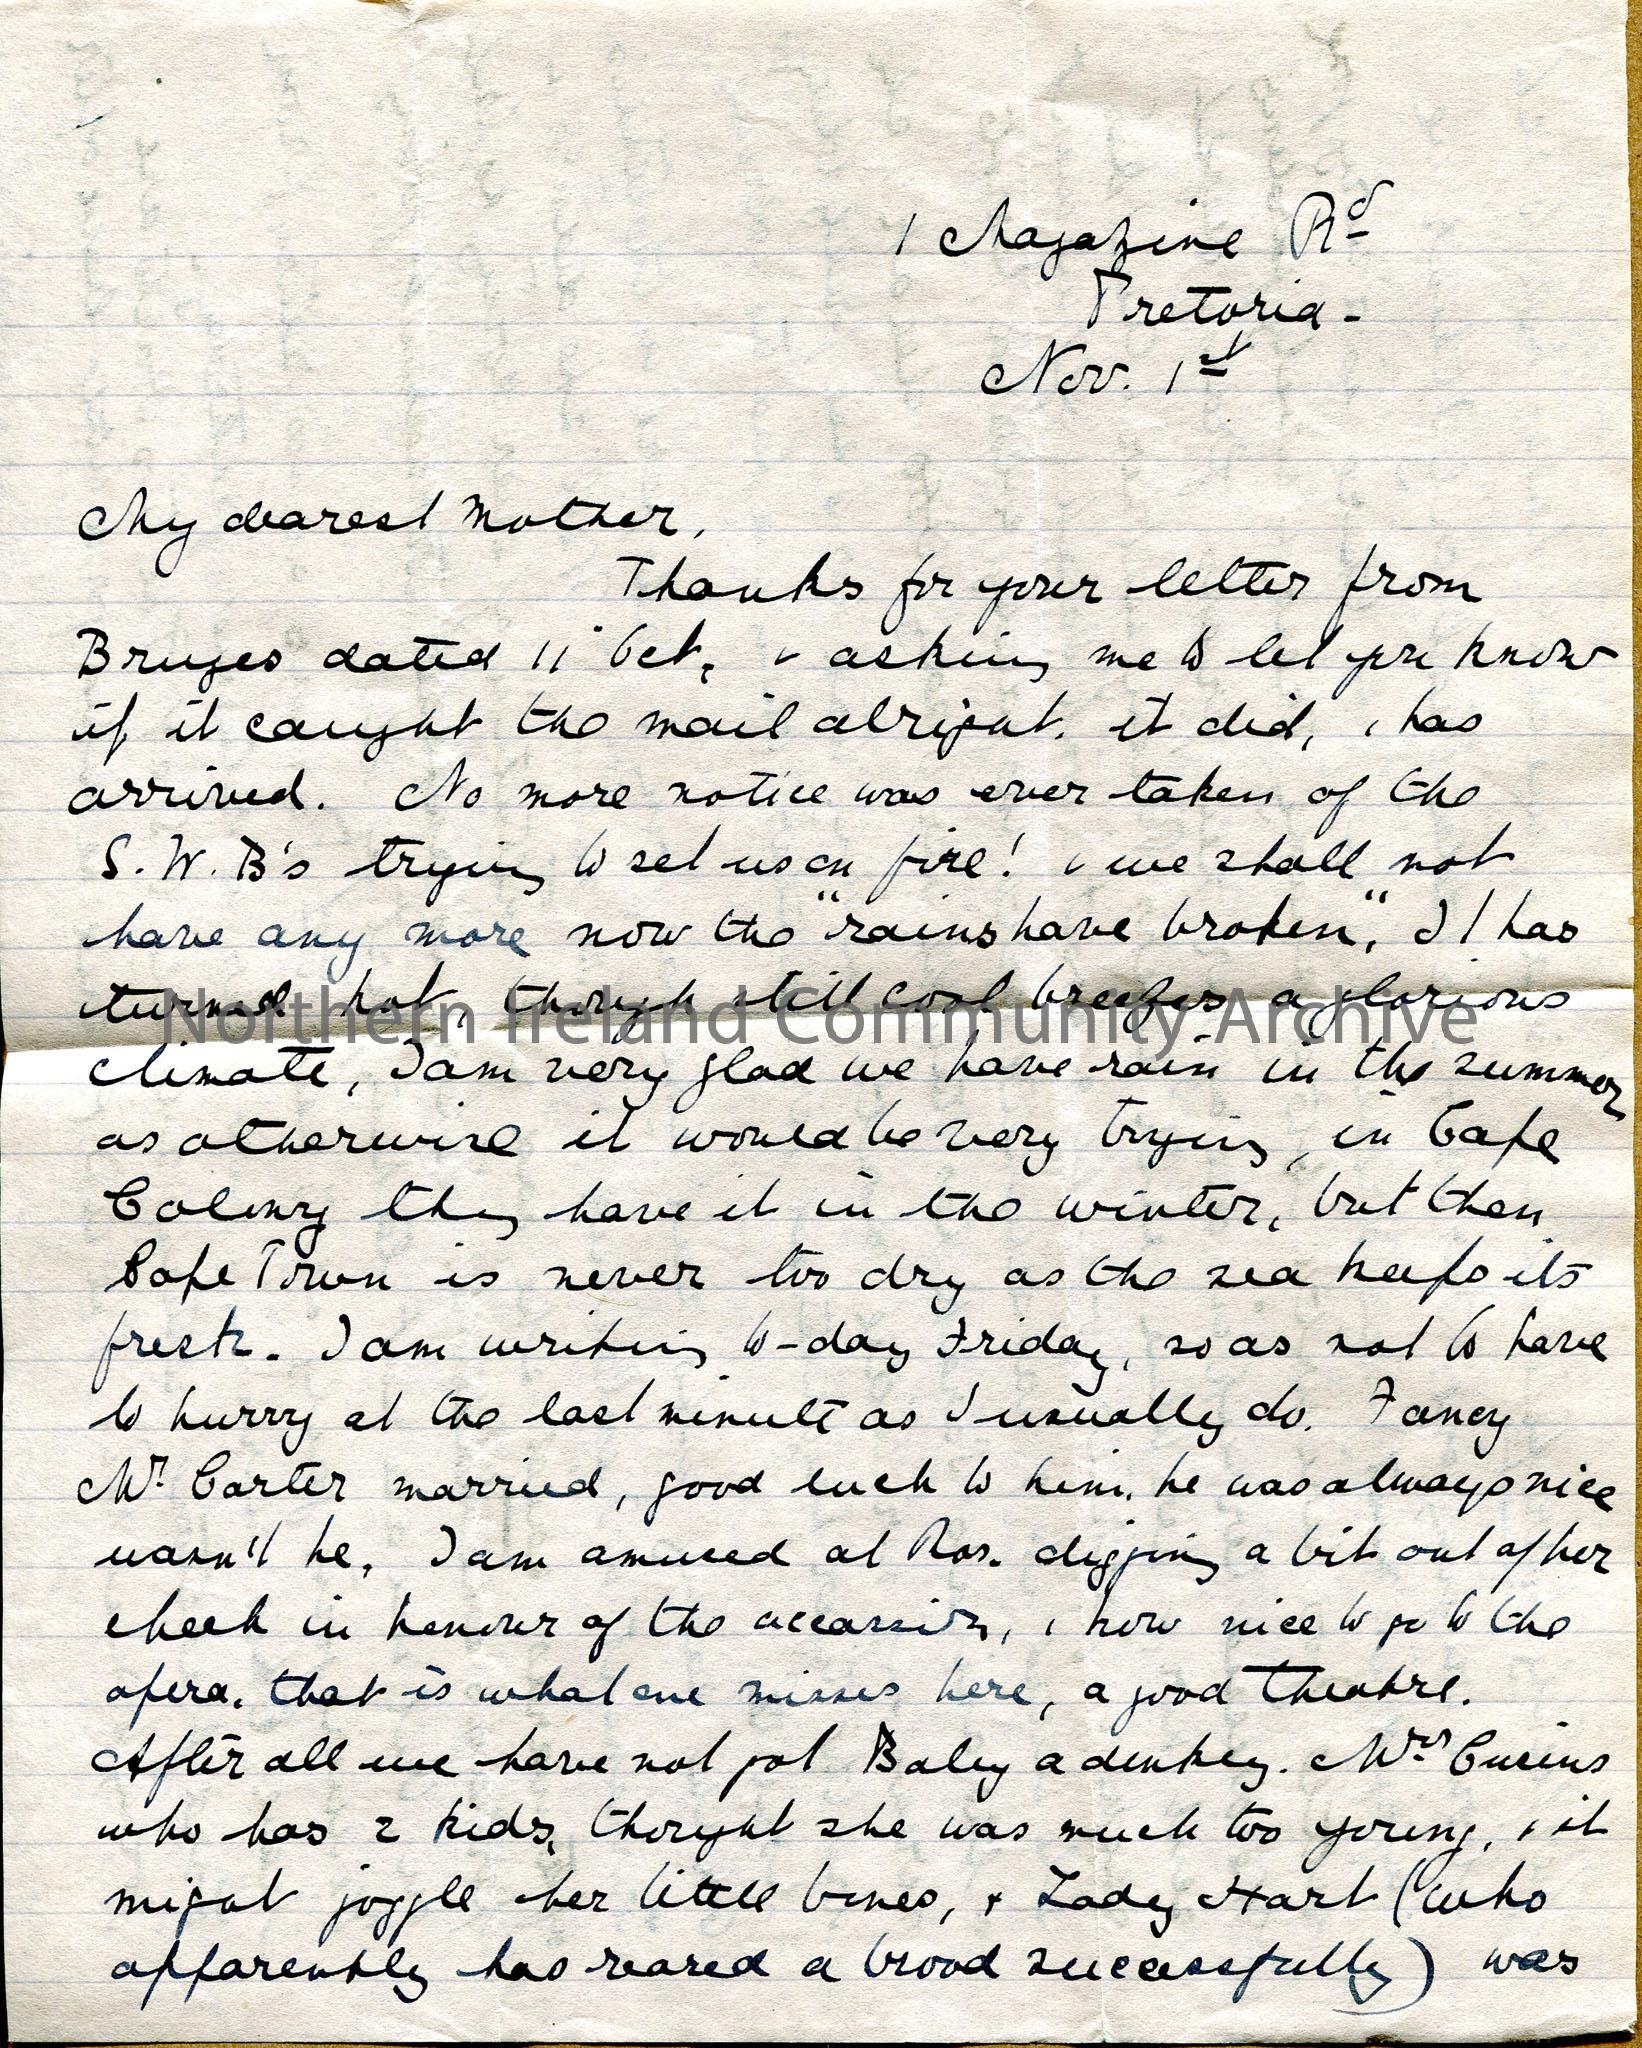 1 Magazine Rd
Pretoria -
Nov. 1st
My dearest Mother,
Thanks for your letter from
Bruges dated 11" Oct, & asking me to let you know
if it caught the mail alright. it did, & has
arrived. No more notice was ever taken of the
S.W.B's trying to set us on fire! & we shall not
have any more now the "rains have broken", It has
turned hot, though still cool breezes, a glorious
Northern Ireland Community Archive
climate, I am very glad we have rain in the summer
as otherwise it would be very trying, in Cape
Colony they have it in the winter, but then
Cape Town is never too dry as the sea keeps its
fresh. I am writing to-day Friday, so as not to have
to hurry at the last minute as I usually do. Fancy
Mr. Carter married, good luck to him. he was always nice
wasn't he. I am amused at Ros. digging a bit out of her
cheek in honour of the occassion, & how nice to go to the
opera. that is what one misses here, a good theatre.
After all we have not got Baby a donkey. Mrs
who has 2 kids, thought she was much too young, & it
might joggle her little bones, & Lady Hart (who
apparently has reared a brood successfully) was